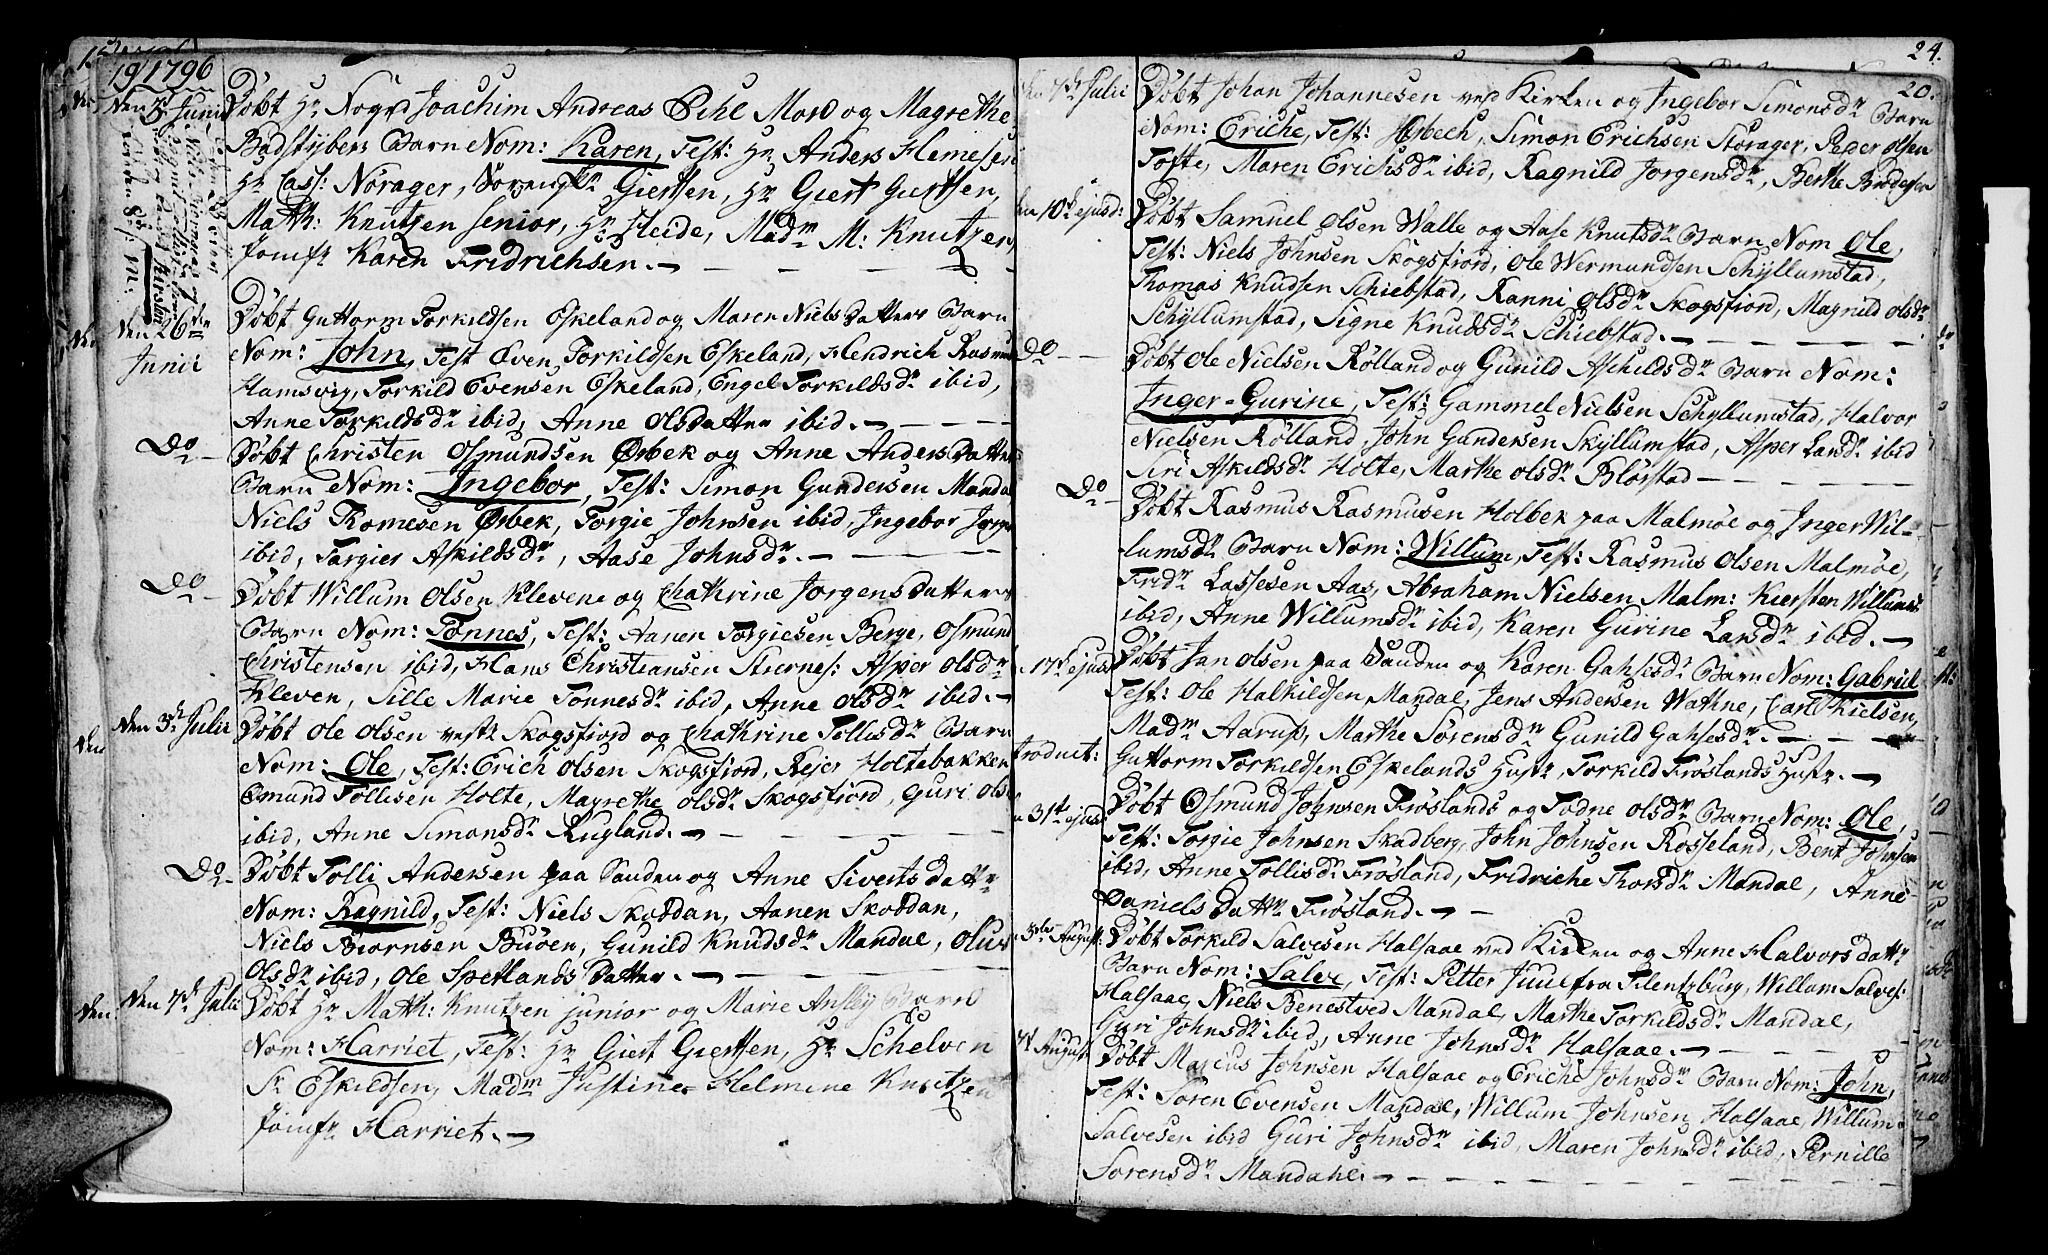 19/1796
Den 5t Junii
Døbt Hr Nogrd Joachim Andreas Dihl Mord og Magrethe
Bødstÿbers Barn Nom: Karen, Test: Hr Anders Hemesen
Hr Cass: Nørager, Giertsen, Hr Giert Giertsen,
Math: Knutzen senior, Hr Heide, Madm M: Knutzen
Jomfr Karen Fridrichsen. —
Den 26de Junii
Døbt Guttorm Torkildsen Eskeland og Maren Niels Datters Barn
Nom: John, Test Even Torkildsen Eskeland, Hendrich Rasmus
Hamsvig, Torkild Evensen Eskeland, Engel Torkildsdr ibid,
Anne Torkildsdr ibid, Anne Olsdatter ibid. —
Do —
Døbt Christen Osmundsen Orbek og Anne Anders Datter
Barn Nom: Ingebor, Test: Simon Gundersen Mandal
Niels Tromesen Orbek, Torgie Johnsen ibid, Ingebor
ibid, Targier Askildsdr, Aase Johnsdr. —
Do —
Døbt Willum Olsen Klevene og Chathrine Jorgens Datters
Barn Nom: Tonnes, Test: Aanen Torgiesen Berge, Osmund
Christensen ibid, Hans Christiansen Stiernes: Asper Olsdr
Kleven, Sille Marie Tonnesdr ibid, Anne Olsdr ibid. —
Den 3de Julii
Døbt Ole Olsen vestr Skogsfiord og Chathrine Tollisdr Barn
Nom: Ole, Test: Erich Olsen Skogsfiord, Rejer Holtebakken
Omund Tollisen Holte, Magrethe Olsdr Skogsfiord, Guri Ols
ibid, Anne Simonsdr Rugland. —
Do —
Døbt Tolli Andersen paa Sanden og Anne Siverts datter
Nom: Ragnild, Test: Niels Skoddan, Aanen Skoddan,
Niels Biørnsen Buøen, Gunild Knudsdr Mandal, Olus
Olsdr ibid, Ole Spetlands Datter. —
Den 7de Julii
Døbt Hr Math: Knutzen junior og Marie Ansley Barn
Nom: Harriet, Test: Hr Giert Giertsen, Hr Schelven
Sr Eskildsen, Madm Justine Helmine Knutzen
Jomfr Harriet. —
24.
20.
7de Julii
Døbt Johan Johannesen ved Kirken og Ingebor Simonsdr Barn
Nom: Eriche, Test: Osbech, Simon Erichsen Størager, Peder Olsen
Tofte, Maren Erichsdr ibid, Ragnild Jorgensdr, Berthe
10de ejusd:
Døbt Samuel Olsen Walle og Aase Knutsdr Barn Nom Ole,
Test: Niels Johnsen Skogsfiord, Ole Wermundsen Schÿllumstad,
Thomas Knudsen Schiebstad, Ranni Olsdr Skogsfiord, Magnild Olsdr
Schÿllumstad, Signe Knudsdr Schiebstad. —
Do —
Døbt Ole Nielsen Rølland og Gunild Aschildsdr Barn Nom:
Inger-Gurine, Test: Gammel Nielsen Schÿllumstad, Halvor
Nielsen Rølland, John Gundersen Skÿllumstad, Asper Landr ibid
Siri Askildsdr Holte, Marthe Olsdr Blørstad —
Do —
Døbt Rasmus Rasmusen Holbek paa Malmøe og Inger Wil-
lumsdr Barn Nom: Willum, Test: Rasmus Olsen Malmøe,
Fridr Lassesen Aas, Abraham Nielsen Malm: Kiersten Willums
ibid, Anne Willumsdr ibid, Karen Gurine Larsdr ibid. —
17de ejusd
Døbt Jan Olsen paa Sanden og Karen Gahsisdr Barn Nom: Gabriel
Test: Ole Halkildsen Mandal, Jens Andersen Wathne, Carl Nielsen,
Madm Aarup, Marthe Sørensdr Gunild Gahsesdr. —
troduct:
Guttorm Torkildsen Eskelands Hustr, Torkild Frøslands Hustr. —
31te ejusd
Døbt Osmund Johnsen Frøslands og Todne Olsdr Barn Nom: Ole,
Test: Torgie Johnsen Skadberg, John Johnsen Rosseland, Bent Johnsen
ibid, Anne Tollisdr Frøsland, Fridriche Thorsdr Mandal, Anne
Daniels Datter Frøsland. —
August:
Døbt Torkild Salvesen Halsaae ved Kirken og Anne Halvors datr
Barn Nom: Salve, Test: Petter Juul fra Flentzburg, Willum Salves:
Halsaae, Niels Benestved Mandal, Marthe Torkildsdr Mandal,
Guri Johnsdr ibid, Anne Johnsdr Halsaae. —
August
Døbt Marcus Johnsen Halsaae og Eriche Johnsdr Barn Nom: John,
Test: Søren Evensen Mandal, Willum Johnsen Halsaae, Willum
Salvesen ibid Guri Johnsdr ibid, Maren Johnsdr ibid, Pernille
Sorensdr Mandahl. —